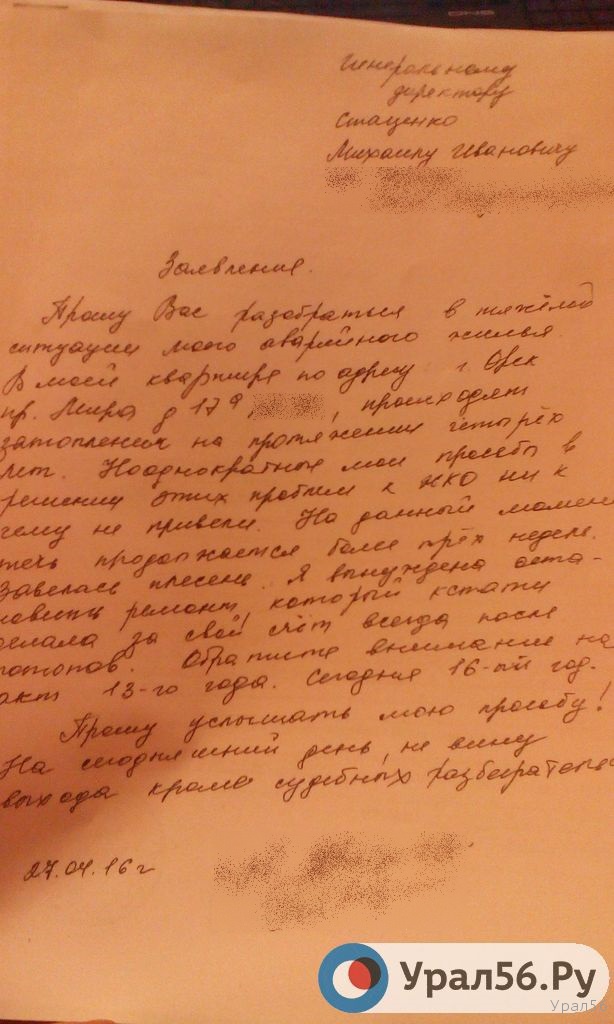 Генеральному
директору
Стаценко
Михаилу Ивановичу
Заявление.
Прошу Вас разобраться в тяжёлой
ситуации моего аварийного жилья.
В моей квартире по адресу г. Орск
пр. Мира д 17а, , происходят
затопления на протяжении четырёх
лет. Неоднократные мои просьбы в
решении этих проблем к ЖКО ни к
чему не привели. На данный момент
течь продолжается более трёх недель.
Завелась плесень. Я вынуждена оста-
новить ремонт, который кстати
делала за свой счёт всегда после
потопов. Обратите внимание на
акт 13-го года. Сегодня 16-ый год.
Прошу услышать мою просьбу!
На сегодняшний день, не вижу
выхода кроме судебных разбирательс
27.04.16 г
Урал56.Ру
Урал56